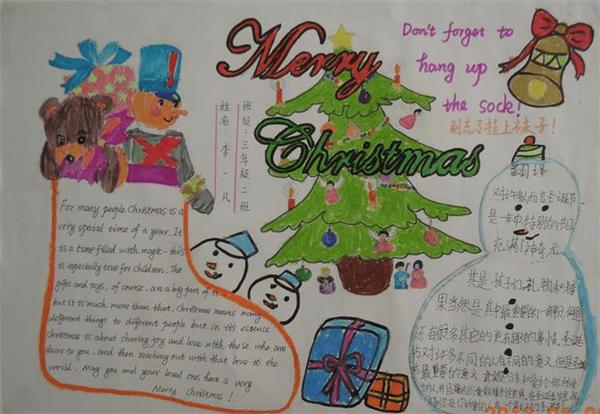 Merry
Christmas
Don't forget to
hang up
the sock!
别忘了挂上袜子!
班级:三年级二班
姓名:李一凡
For many people, Christmas is a
very special time of a year. It
is a time filled with magic - this
is especially true for children. The
gifts and toys, of course, are a big part of it
but it is much more than that. Christmas means many
different things to different people but in its essence
Christmas is about sharing joy and love with those who are
dear to you, and then reaching out with that love to the
world. May you and your loved ones have a very
Merry Christmas!
翻译
对许多人而言圣诞节
是一年中特别的节日
充满了神奇
其是孩子们.礼物和
果当然是其中最重要的一部分
还有很多其它的更有趣的事情.圣诞
节对许多不同的人有不同的意义